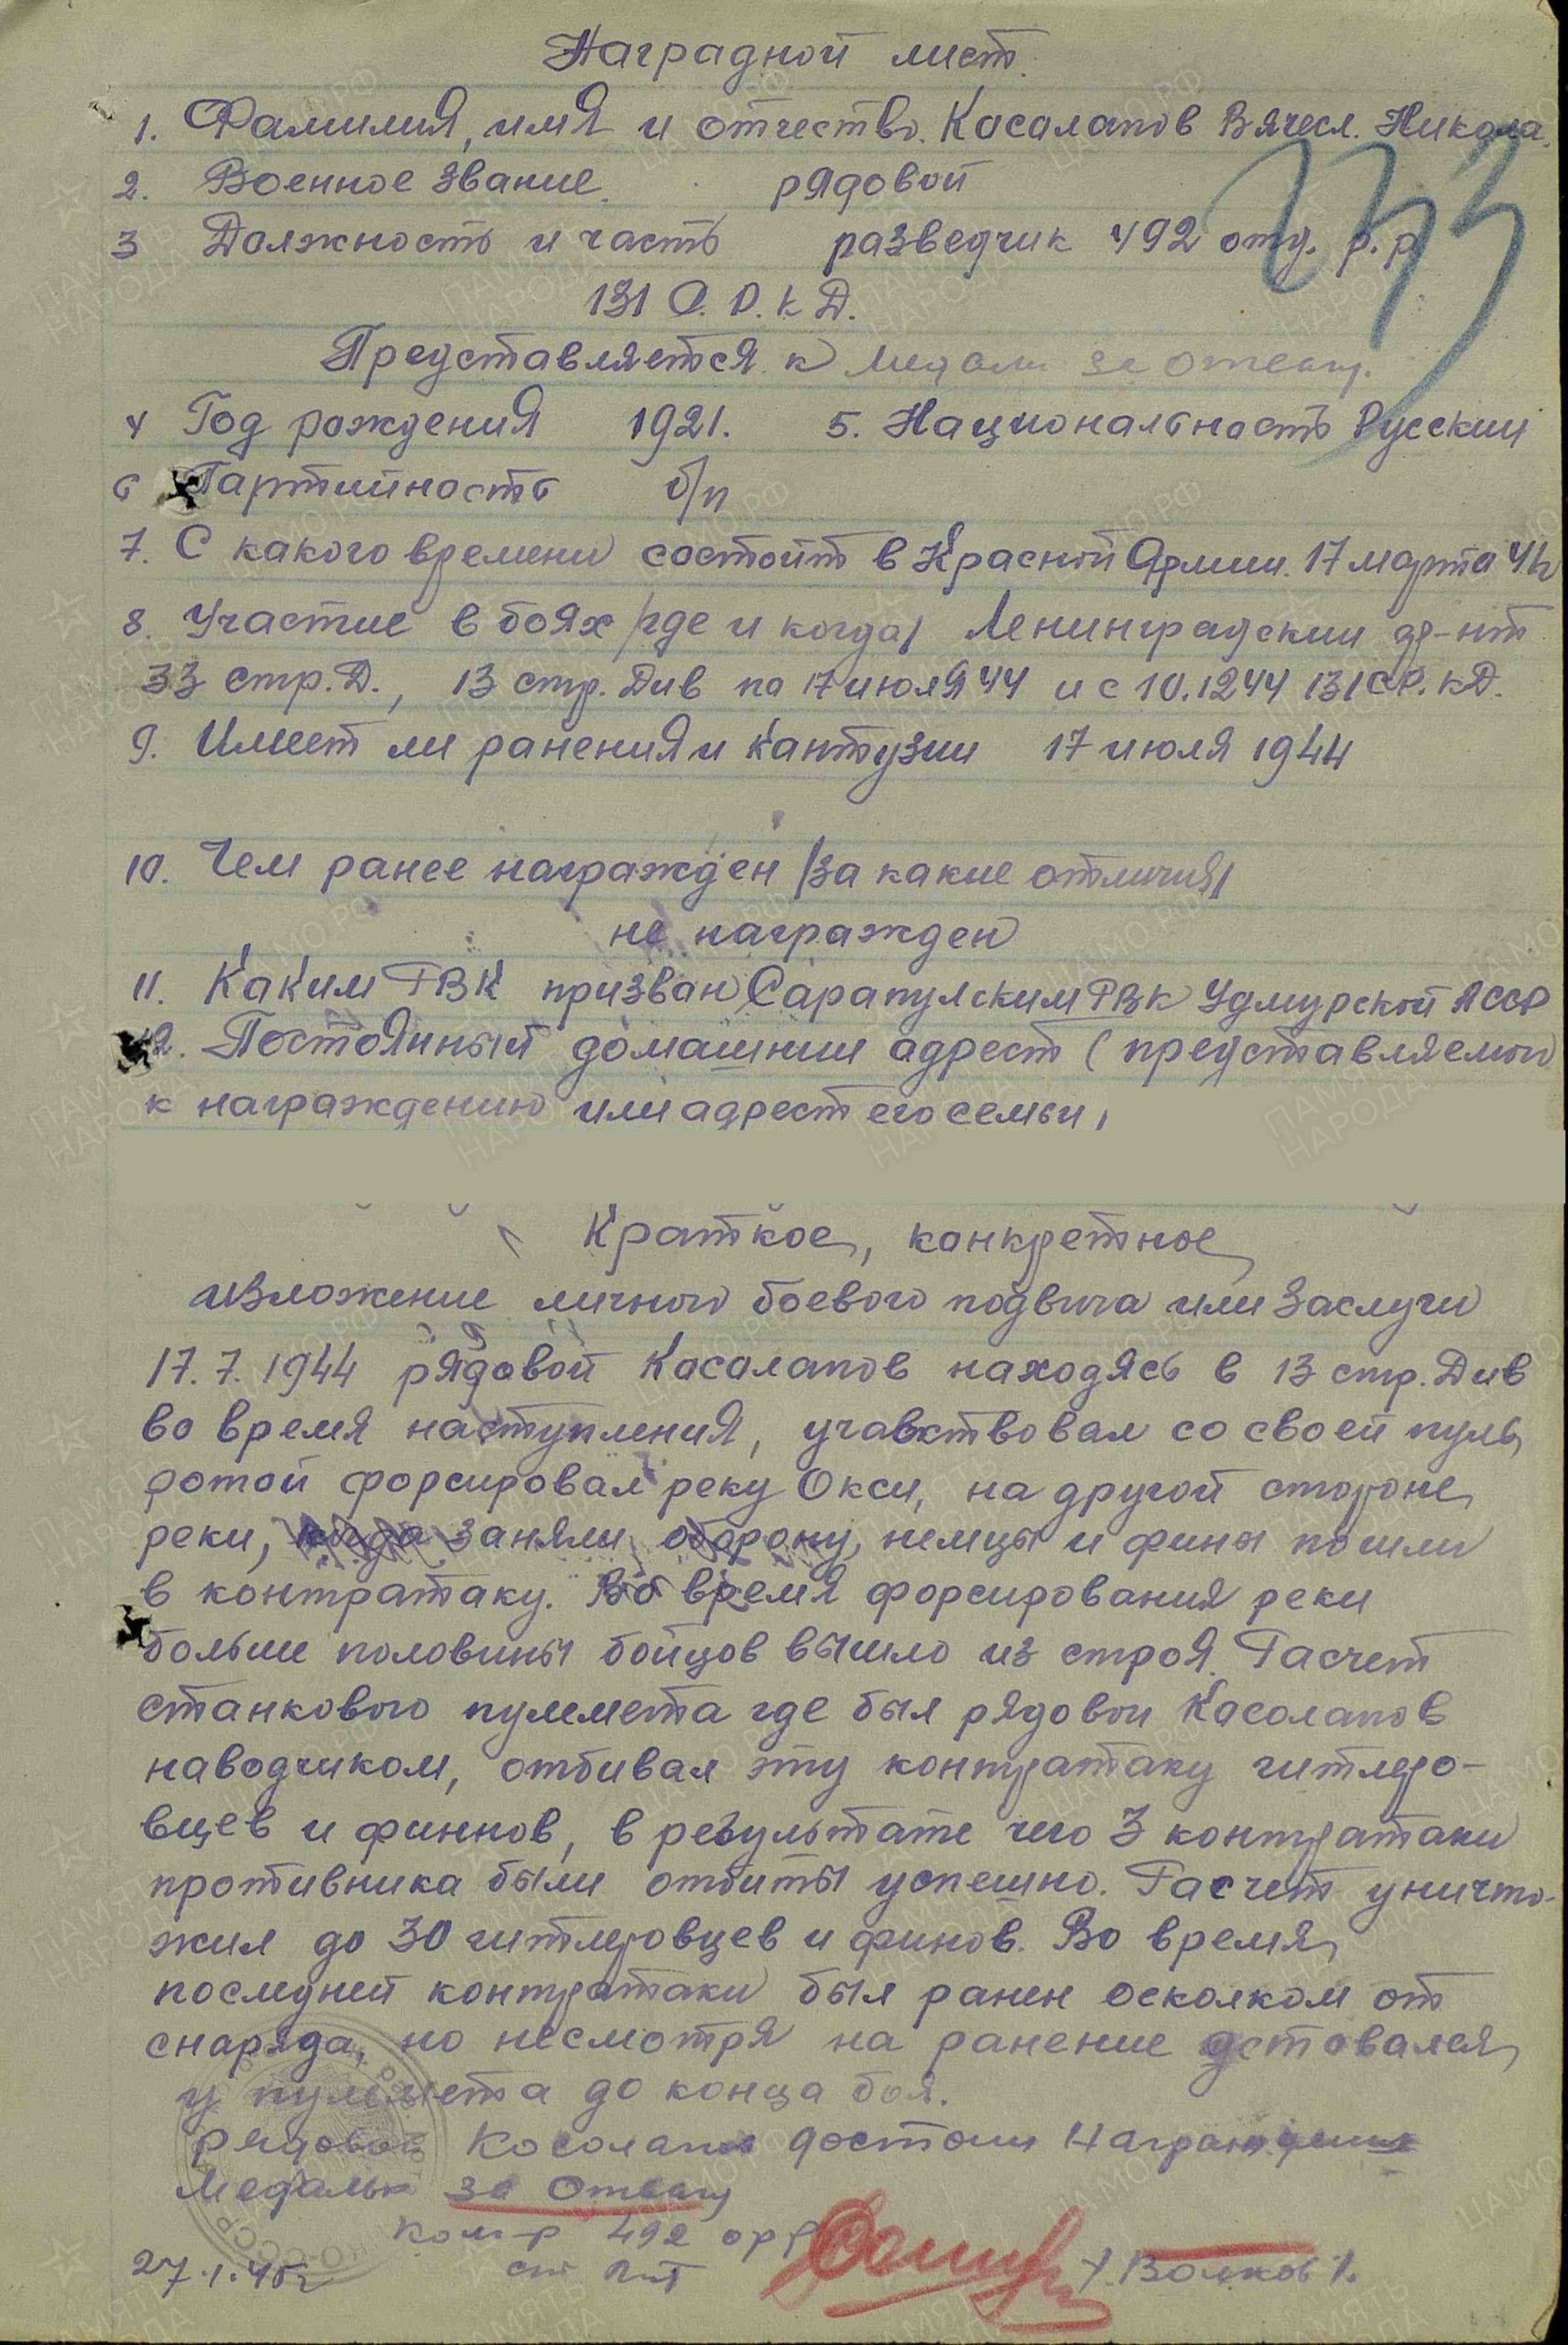 Наградной лист.
1. Фамилия, имя и отчество. Касалапов Вячесл. Никола.
2. Военное звание. рядовой
3 Должность и часть разведчик 492 отд. р.р
131 С.Р.КД.
Представляется к медали за отвагу.
4 Год рождения 1921. 5. Национальность Русский
6 Партийность б/п
7. С какого времени состоит в Красной Армии. 17 марта 42
8. Участие в боях /где и когда/ Ленинградский фр-нт
33 стр.Д., 13 стр.Див по 17 июля 44 и с 10.12 44 131 С.Р.КД.
9. Имеет ли ранения и кантузии 17 июля 1944
10. Чем ранее награжден /за какие отличия/
не награжден
11. Каким РВК призван Сарапулским РВК Удмурской АССР
12. Постоянный домашнии адрест (представляемого
к награждению или адрест его семьи,
Краткое, конкретное
изложение личного боевого подвига или заслуги
17.7.1944 рядовой Касалапов находясь в 13 стр.Див
во время наступления, учавствовал со своей пуль
ротой форсировал реку Окси, на другой стороне
реки, заняли оборону, немцы и фины пошли
в контратаку. Во время форсирования реки
больше половины бойцов вышло из строя. Расчет
станкового пулемета где был рядовои Касолапов
наводчиком, отбивал эту контратаку гитлеро-
вцев и финнов, в результате чего 3 контратаки
противника были отбиты успешно. Расчет уничто-
жил до 30 гитлеровцев и финов. Во время
последней контратаки был ранен осколком от
снаряда, но несмотря на ранение оставался
у пулемета до конца боя.
рядовой Косолапов достоин награждения
медалью за отвагу
Ком-р 492 орр
27.1.45г ст л-т /. Волков /.
233
ПАМЯТЬ НАРОДА
ЦАМО.РФ